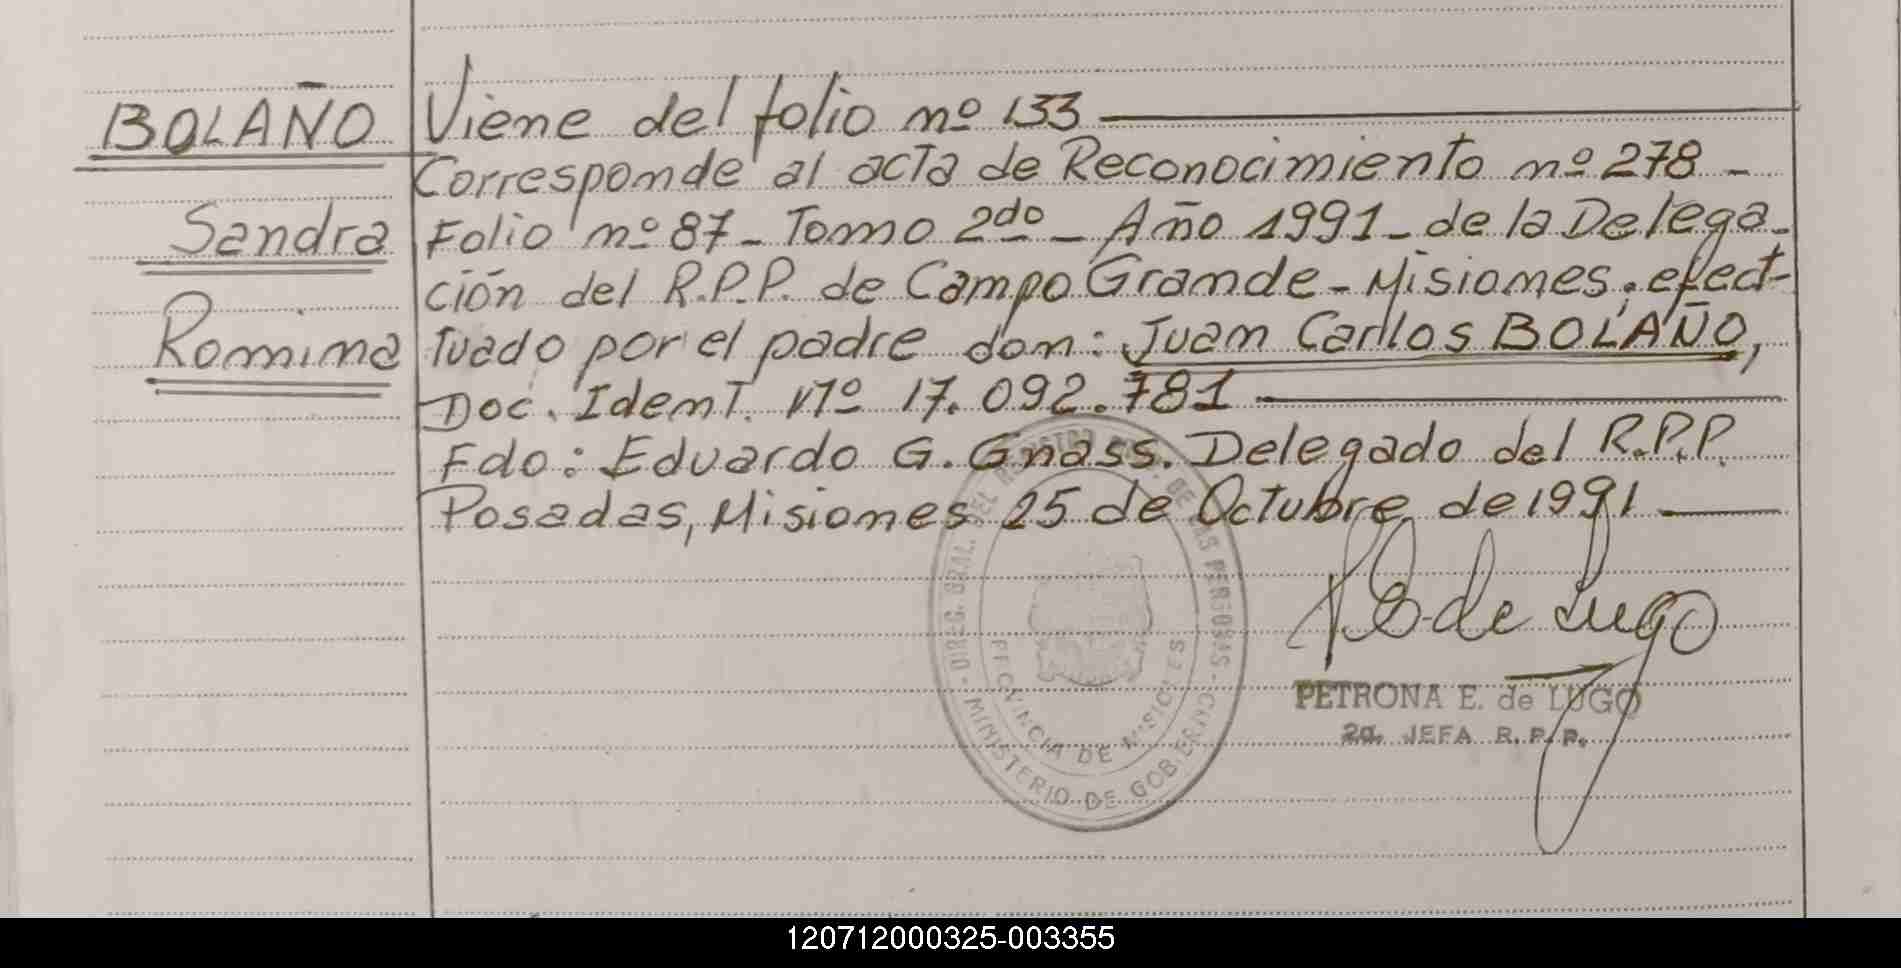 BOLAÑO
Sandra
Romina
Viene del folio nº 133
Corresponde al acta de Reconocimiento nº 278 -
Folio nº 87 - Tomo 2do - Año 1991 - de la Delega-
ción del R.P.P. de Campo Grande - Misiones, efect-
tuado por el padre don: Juan Carlos BOLAÑO,
Doc. Ident. Nº 17.092.781
Fdo: Eduardo G. Gnass. Delegado del R.P.P.
Posadas, Misiones 25 de Octubre de 1991
de Lugo
PETRONA E. de LUGO
2a. JEFA R. P. P.
DIREC. GRAL. DEL REGISTRO DE LAS PERSONAS
PROVINCIA DE MISIONES
MINISTERIO DE GOBIERNO
120712000325-003355